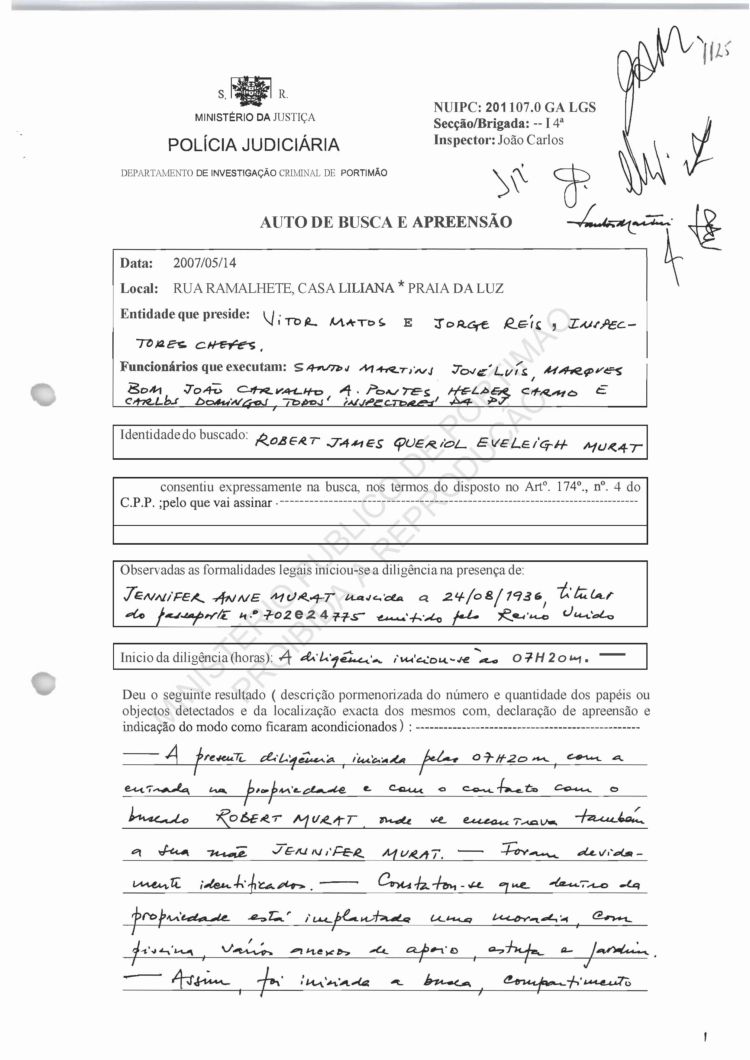 1125
S. R.
MINISTÉRIO DA JUSTIÇA
POLÍCIA JUDICIÁRIA
DEPARTAMENTO DE INVESTIGAÇÃO CRIMINAL DE PORTIMÃO
NUIPC: 201107.0 GA LGS
Secção/Brigada: -- I 4ª
Inspector: João Carlos
Santos Martins
AUTO DE BUSCA E APREENSÃO
Data: 2007/05/14
Local: RUA RAMALHETE, CASA LILIANA * PRAIA DA LUZ
Entidade que preside: VITOR MATOS E JORGE REÍS, INSPEC-
TORES CHEFES.
Funcionários que executam: SANTOS MARTINS JOSÉ LUÍS, MARQUES
BOM, JOÃO CARVALHO, A. PONTES HELDER CARMO E
CARLOS DOMINGOS, TODOS INSPECTORES DA PJ
Identidade do buscado: ROBERT JAMES QUERIOL EVELEIGH MURAT
consentiu expressamente na busca, nos termos do disposto no Artº. 174º., nº. 4 do
C.P.P. ;pelo que vai assinar .------------------------------------------------------------
Observadas as formalidades legais iniciou-se a diligência na presença de:
JENNIFER ANNE MURAT nascida a 24/08/1936, titular
do passaporte n.º 702024775 emitido pelo Reino Unido
Inicio da diligência (horas): A diligência iniciou-se às 07H20m. —
Deu o seguinte resultado ( descrição pormenorizada do número e quantidade dos papéis ou
objectos detectados e da localização exacta dos mesmos com, declaração de apreensão e
indicação do modo como ficaram acondicionados ) : --------------------------------------------
— A presente diligência, iniciada pelas 07H20m, com a
entrada na propriedade e com o contacto com o
buscado ROBERT MURAT, onde se encontrava também
a sua mãe JENNIFER MURAT. — Foram devida-
mente identificados. — Constatou-se que dentro da
propriedade está implantada uma moradia, com
piscina, vários anexos de apoio, estufa e jardim.
— Assim, foi iniciada a busca, compartimento
MINISTÉRIO PUBLICO DE PORTIMÃO
PROIBIDA A REPRODUÇÃO
1